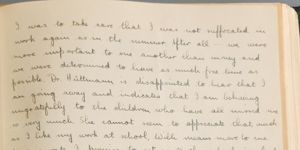 I was to take care that I was not suffocated in
work again as in the summer. After all - we were
more important to one another than money and
we were determined to have as much free time as
possible. Dr. Hüttmann is disappointed to hear that I
am going away and indicates that I am behaving
ungratefully to the children who have all missed me
so very much. She cannot seem to appreciate that much
as I like my work at school, Willi means more to me